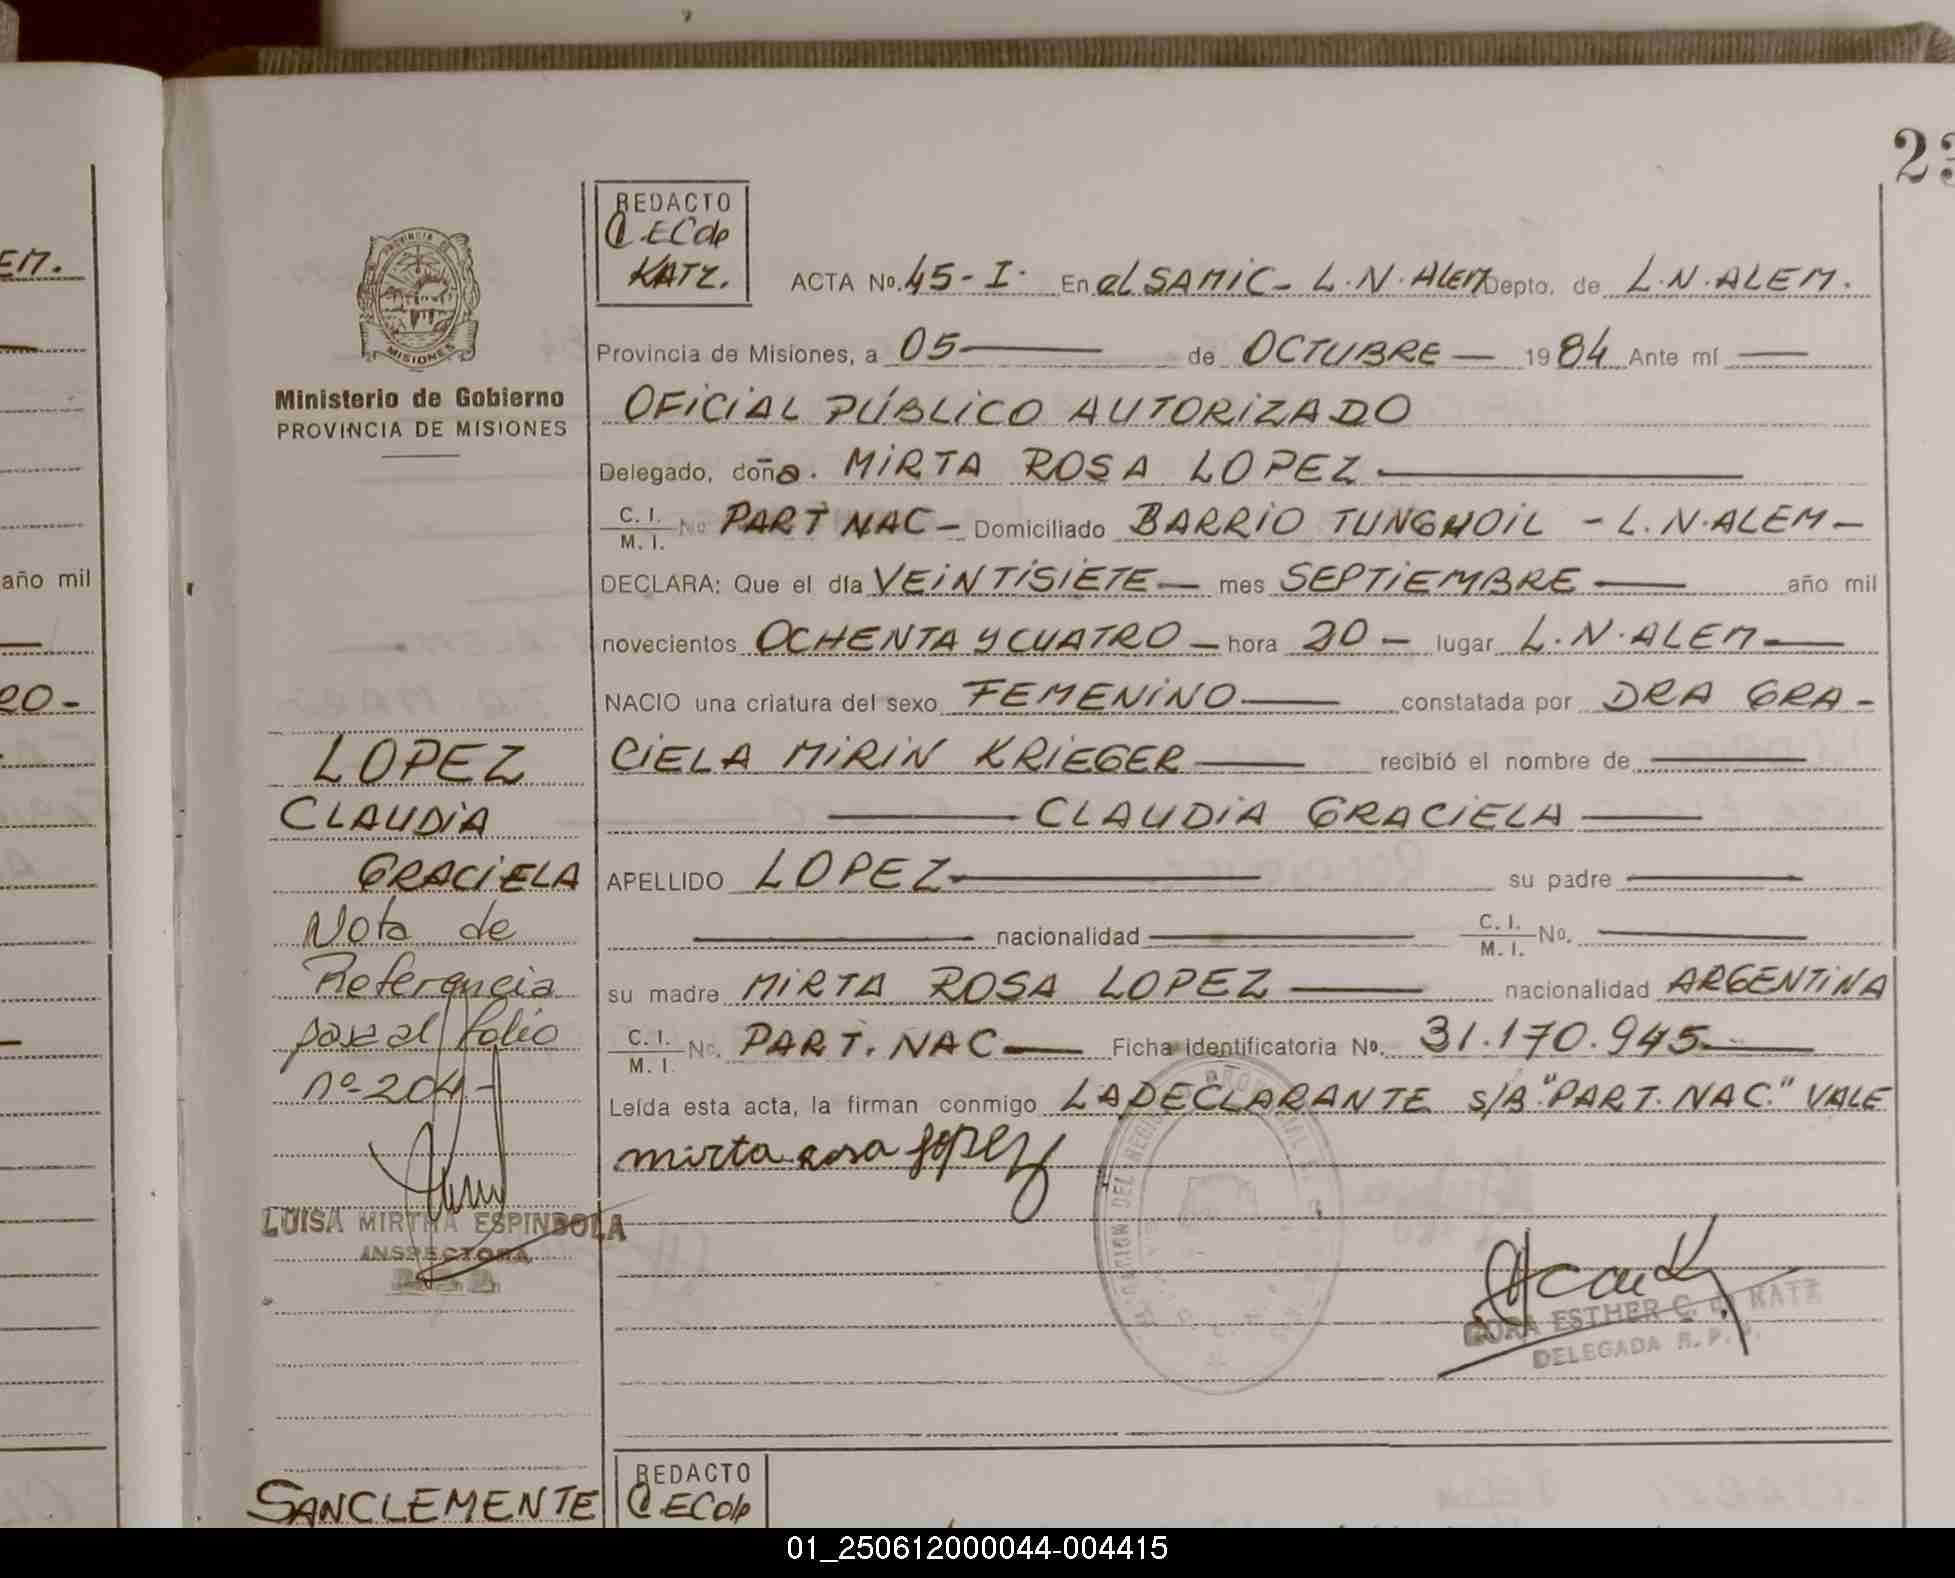 23
EM.
año mil
RO-
PROVINCIA DE
MISIONES
Ministerio de Gobierno
PROVINCIA DE MISIONES
REDACTO
ECde
KATZ.
ACTA No. 45-I. En el SAMIC- L.N.ALEM Depto. de L.N.ALEM.
Provincia de Misiones, a 05 de OCTUBRE 1984 Ante mí
OFICIAL PÚBLICO AUTORIZADO
Delegado, doña. MIRTA ROSA LOPEZ
C. I. M. I. No PART NAC- Domiciliado BARRIO TUNGHOIL - L.N.ALEM-
DECLARA: Que el día VEINTISIETE mes SEPTIEMBRE año mil
novecientos OCHENTA Y CUATRO hora 20 lugar L.N.ALEM
NACIO una criatura del sexo FEMENINO constatada por DRA GRA-
CIELA MIRIN KRIEGER recibió el nombre de
CLAUDIA GRACIELA
APELLIDO LOPEZ su padre
nacionalidad C. I. M. I. No.
su madre MIRTA ROSA LOPEZ nacionalidad ARGENTINA
C. I. M. I. No. PART. NAC Ficha Identificatoria No. 31.170.945
Leída esta acta, la firman conmigo LA DECLARANTE S/A "PART. NAC." VALE
mirta rosa lopez
LOPEZ
CLAUDIA
GRACIELA
Nota de
Referencia
pase al folio
nº 204-
LUISA MIRTHA ESPINDOLA
INSPECTORA
DORA ESTHER C. de KATZ
DELEGADA R. P.
SANCLEMENTE
REDACTO
ECde
01_250612000044-004415